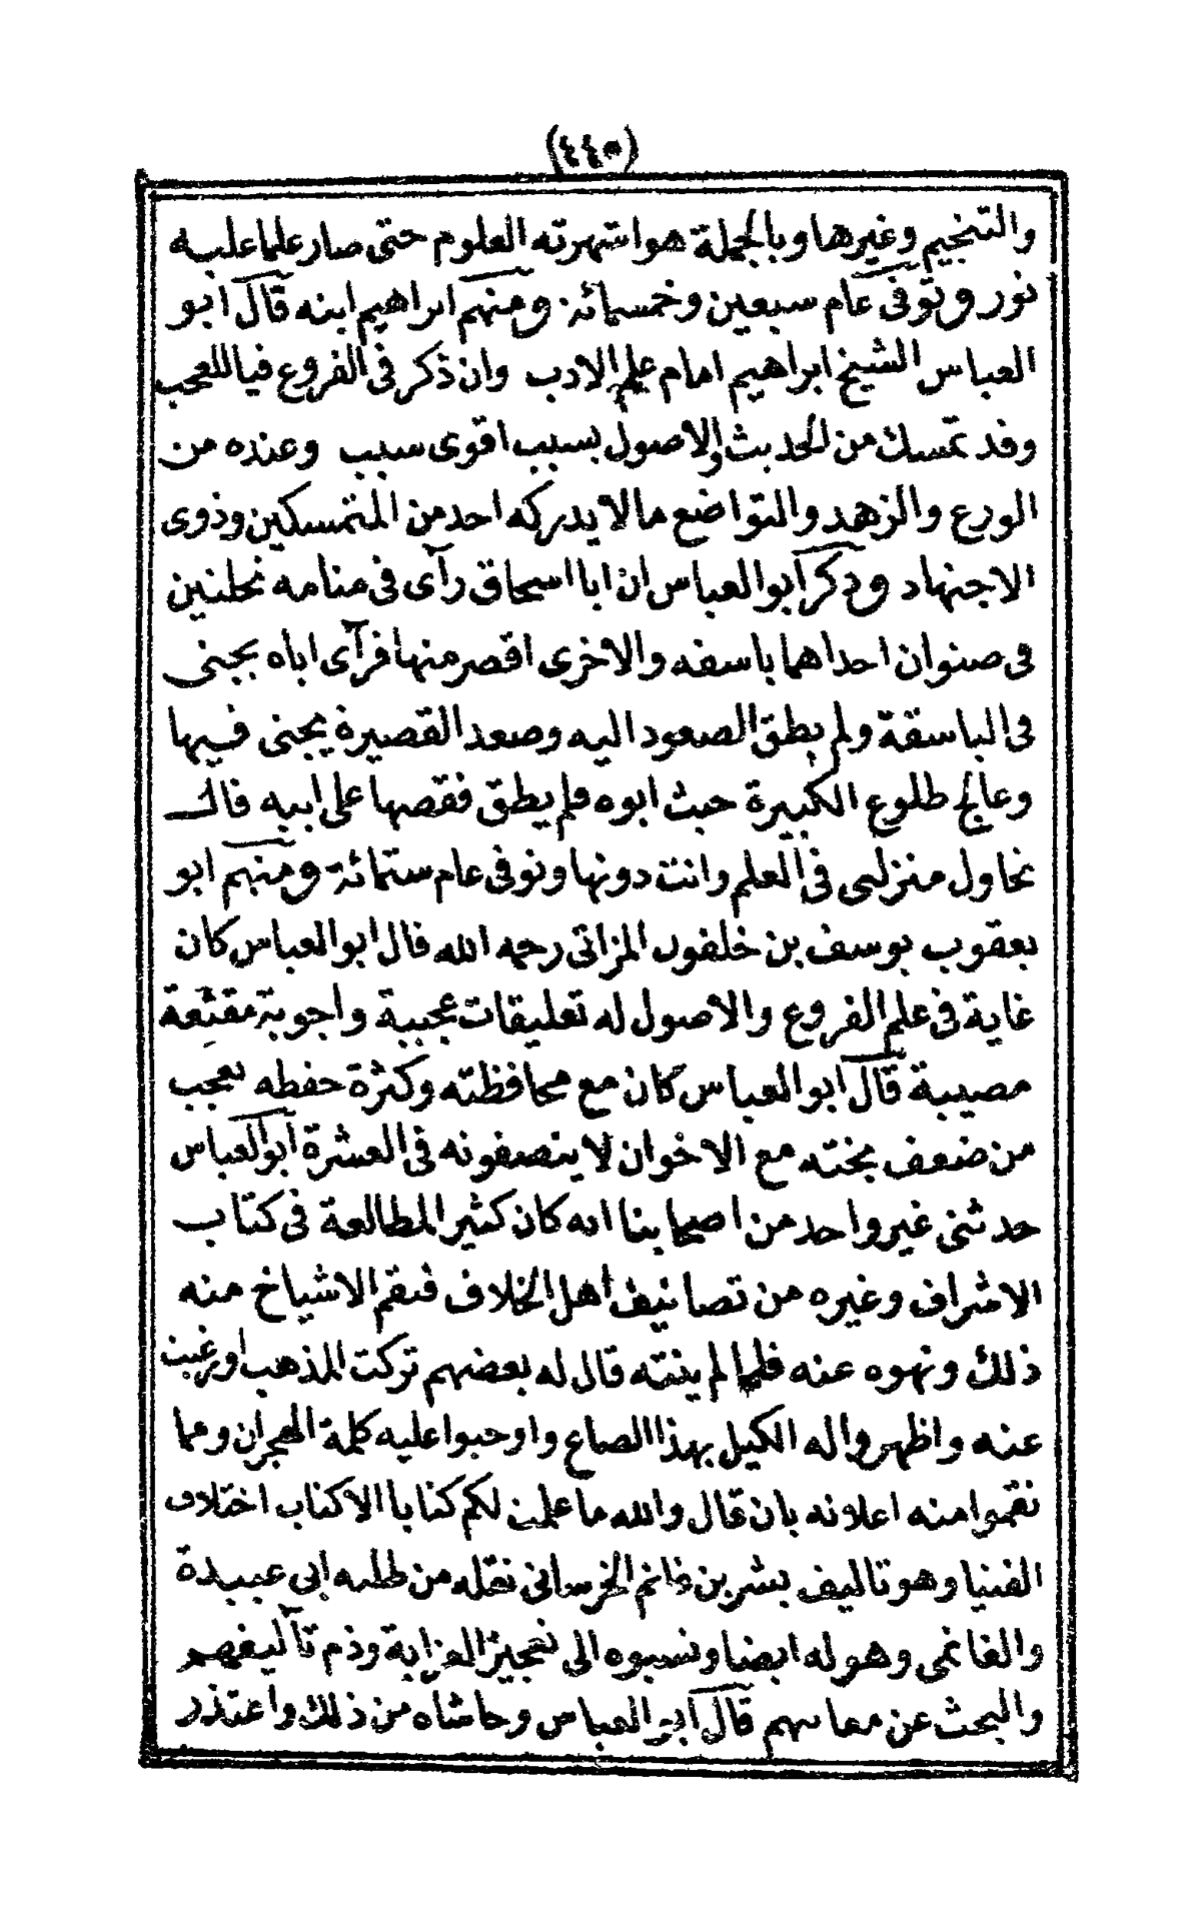 (٤٤٥)
والتنجيم وغيرها وبالجملة هو اشهرته العلوم حتى صار علما عليه
نور وتوفى عام سبعين وخمسمائة ومنهم ابراهيم ابنه قال ابو
العباس الشيخ ابراهيم امام علم الادب وان ذكر فى الفروع فيا للعجب
وقد تمسك من الحديث والاصول بسبب اقوى سبب وعنده من
الورع والزهد والتواضع ما لا يدركه احد من المتمسكين وذوى
الاجتهاد وذكر ابو العباس ان ابا اسحاق رآى فى منامه نخلتين
فى صنوان احداهما باسقه والاخرى اقصر منها فرآى اباه يجنى
فى الباسقة ولم يطق الصعود اليه وصعد القصيرة يجنى فيها
وعالج طلوع الكبيرة حيث ابوه فلم يطق فقصها على ابيه قال
تحاول منزلتى فى العلم وانت دونها وتوفى عام ستمائة ومنهم ابو
يعقوب يوسف بن خلفون المزاتى رحمه الله قال ابو العباس كان
غاية فى علم الفروع والاصول له تعليقات عجيبة واجوبة مقنعة
مصيبة قال ابو العباس كان مع محافظته وكثرة حفظه تعجب
من ضعف بخته مع الاخوان لا ينصفونه فى العشرة ابو العباس
حدثنى غير واحد من اصحابنا انه كان كثير المطالعة فى كتاب
الاشراف وغيره من تصانيف اهل الخلاف فنقم الاشياخ منه
ذلك ونهوه عنه فلما لم ينته قال له بعضهم تركت المذهب اورغبت
عنه واظهروا له الكيل بهذا الصاع واوجبوا عليه كلمة الهجران ومما
نقموا منه اعلانه بان قال والله ما علمت لكم كتابا الا كتاب اختلاف
الفتيا وهو تاليف بشر بن غانم الخرسانى نقله من طلبه ابى عبيدة
والغانمى وهو له ايضا ونسبوه الى تعجيز العزابة وذم تآليفهم
والبحث عن معائبهم قال ابو العباس وحاشاه من ذلك واعتذر